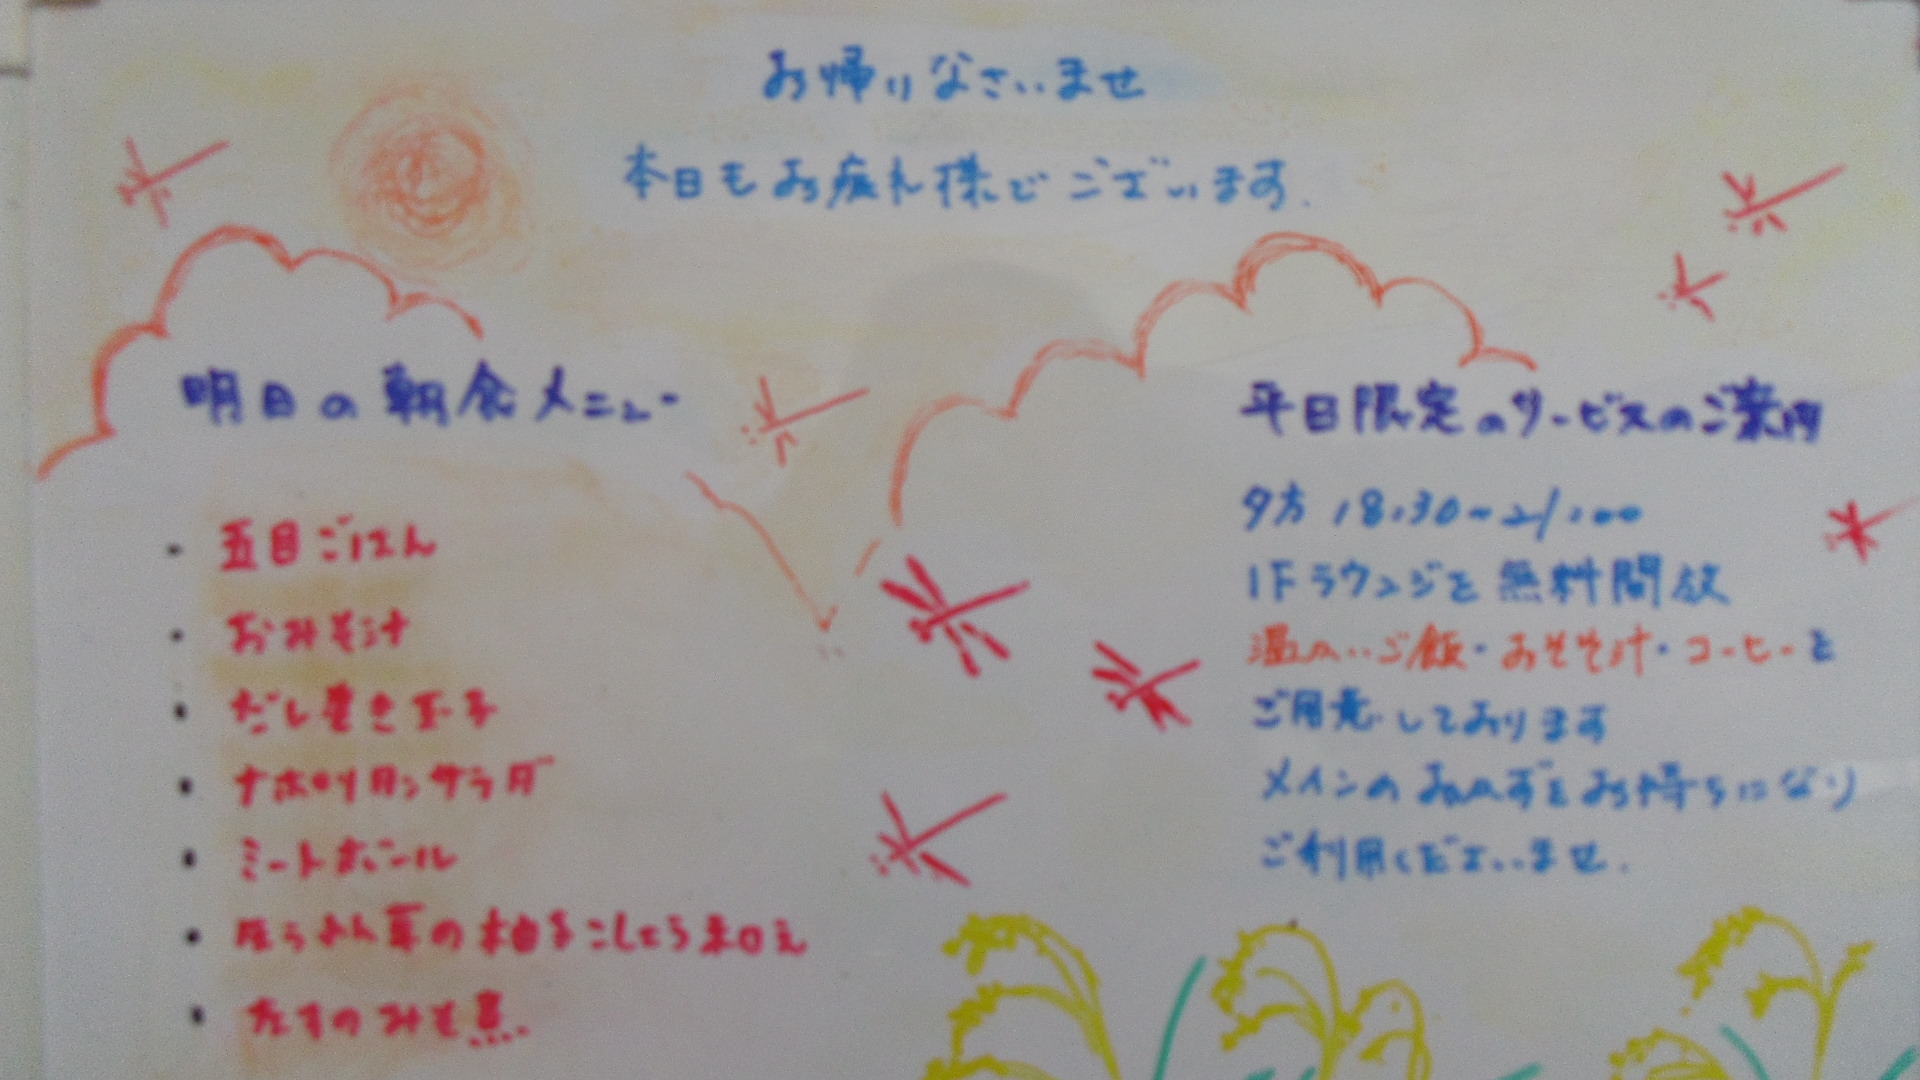 お帰りなさいませ
本日もお疲れ様でございます.
明日の朝食メニュー
・五目ごはん
・おみそ汁
・だし巻き玉子
・ナポリタンサラダ
・ミートボール
・ほうれん草の柚子こしょう和え
・なすのみそ煮
平日限定のサービスのご案内
夕方 18:30~21:00
1Fラウンジを無料開放
温かいご飯・おみそ汁・コーヒーを
ご用意しております
メインのおかずをお持ちになり
ご利用くださいませ.